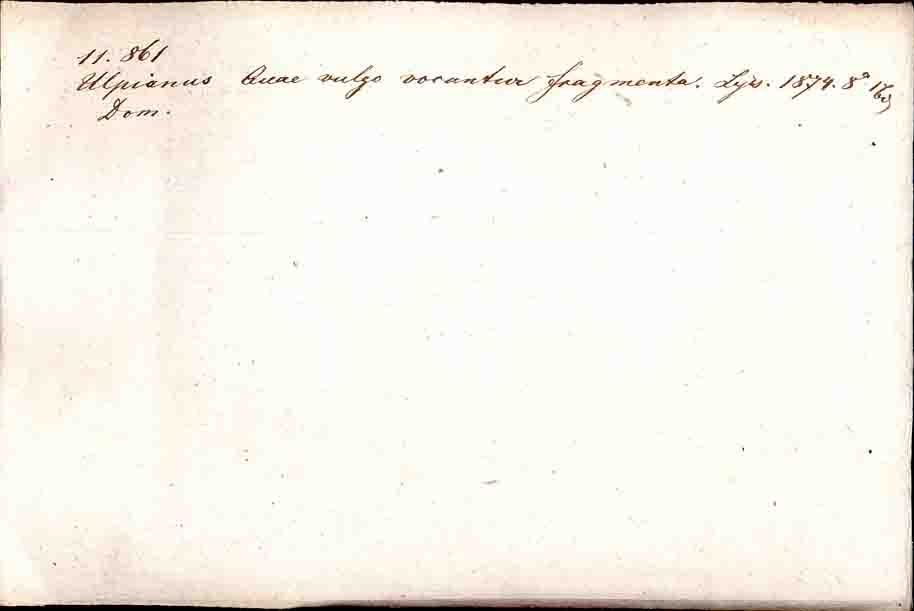 11. 861
Ulpianus Quae vulgo vocantur fragmenta. Lips. 1874. 8°
Dom.